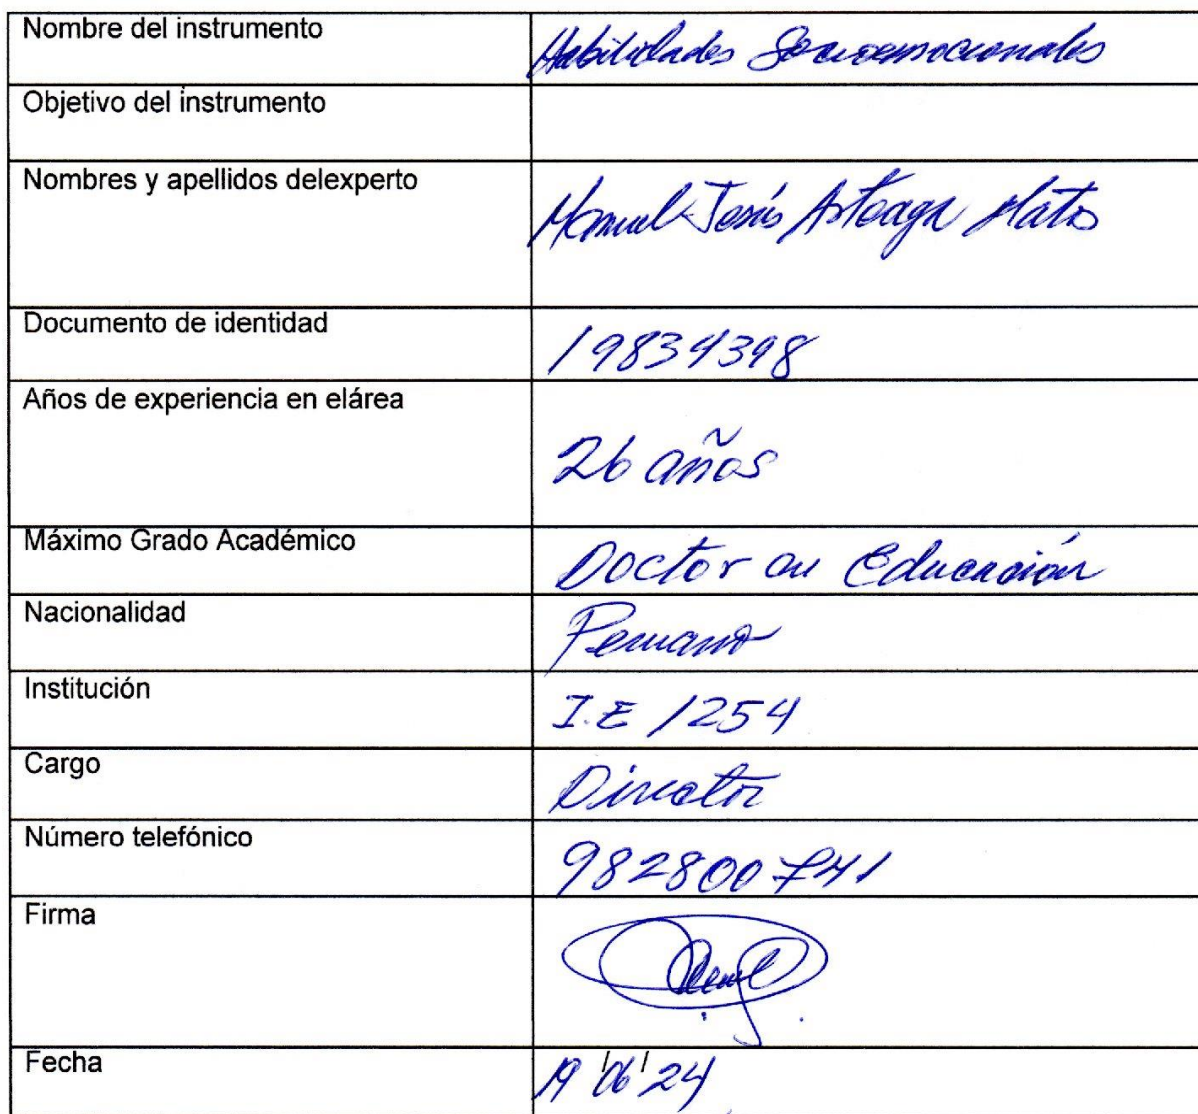 Nombre del instrumento
Habilidades Socioemocionales
Objetivo del instrumento
Nombres y apellidos delexperto
Manuel Jesús Arteaga Matos
Documento de identidad
19834398
Años de experiencia en elárea
26 años
Máximo Grado Académico
Doctor en Educación
Nacionalidad
Peruano
Institución
I.E 1254
Cargo
Director
Número telefónico
982800741
Firma
Fecha
19/06/24